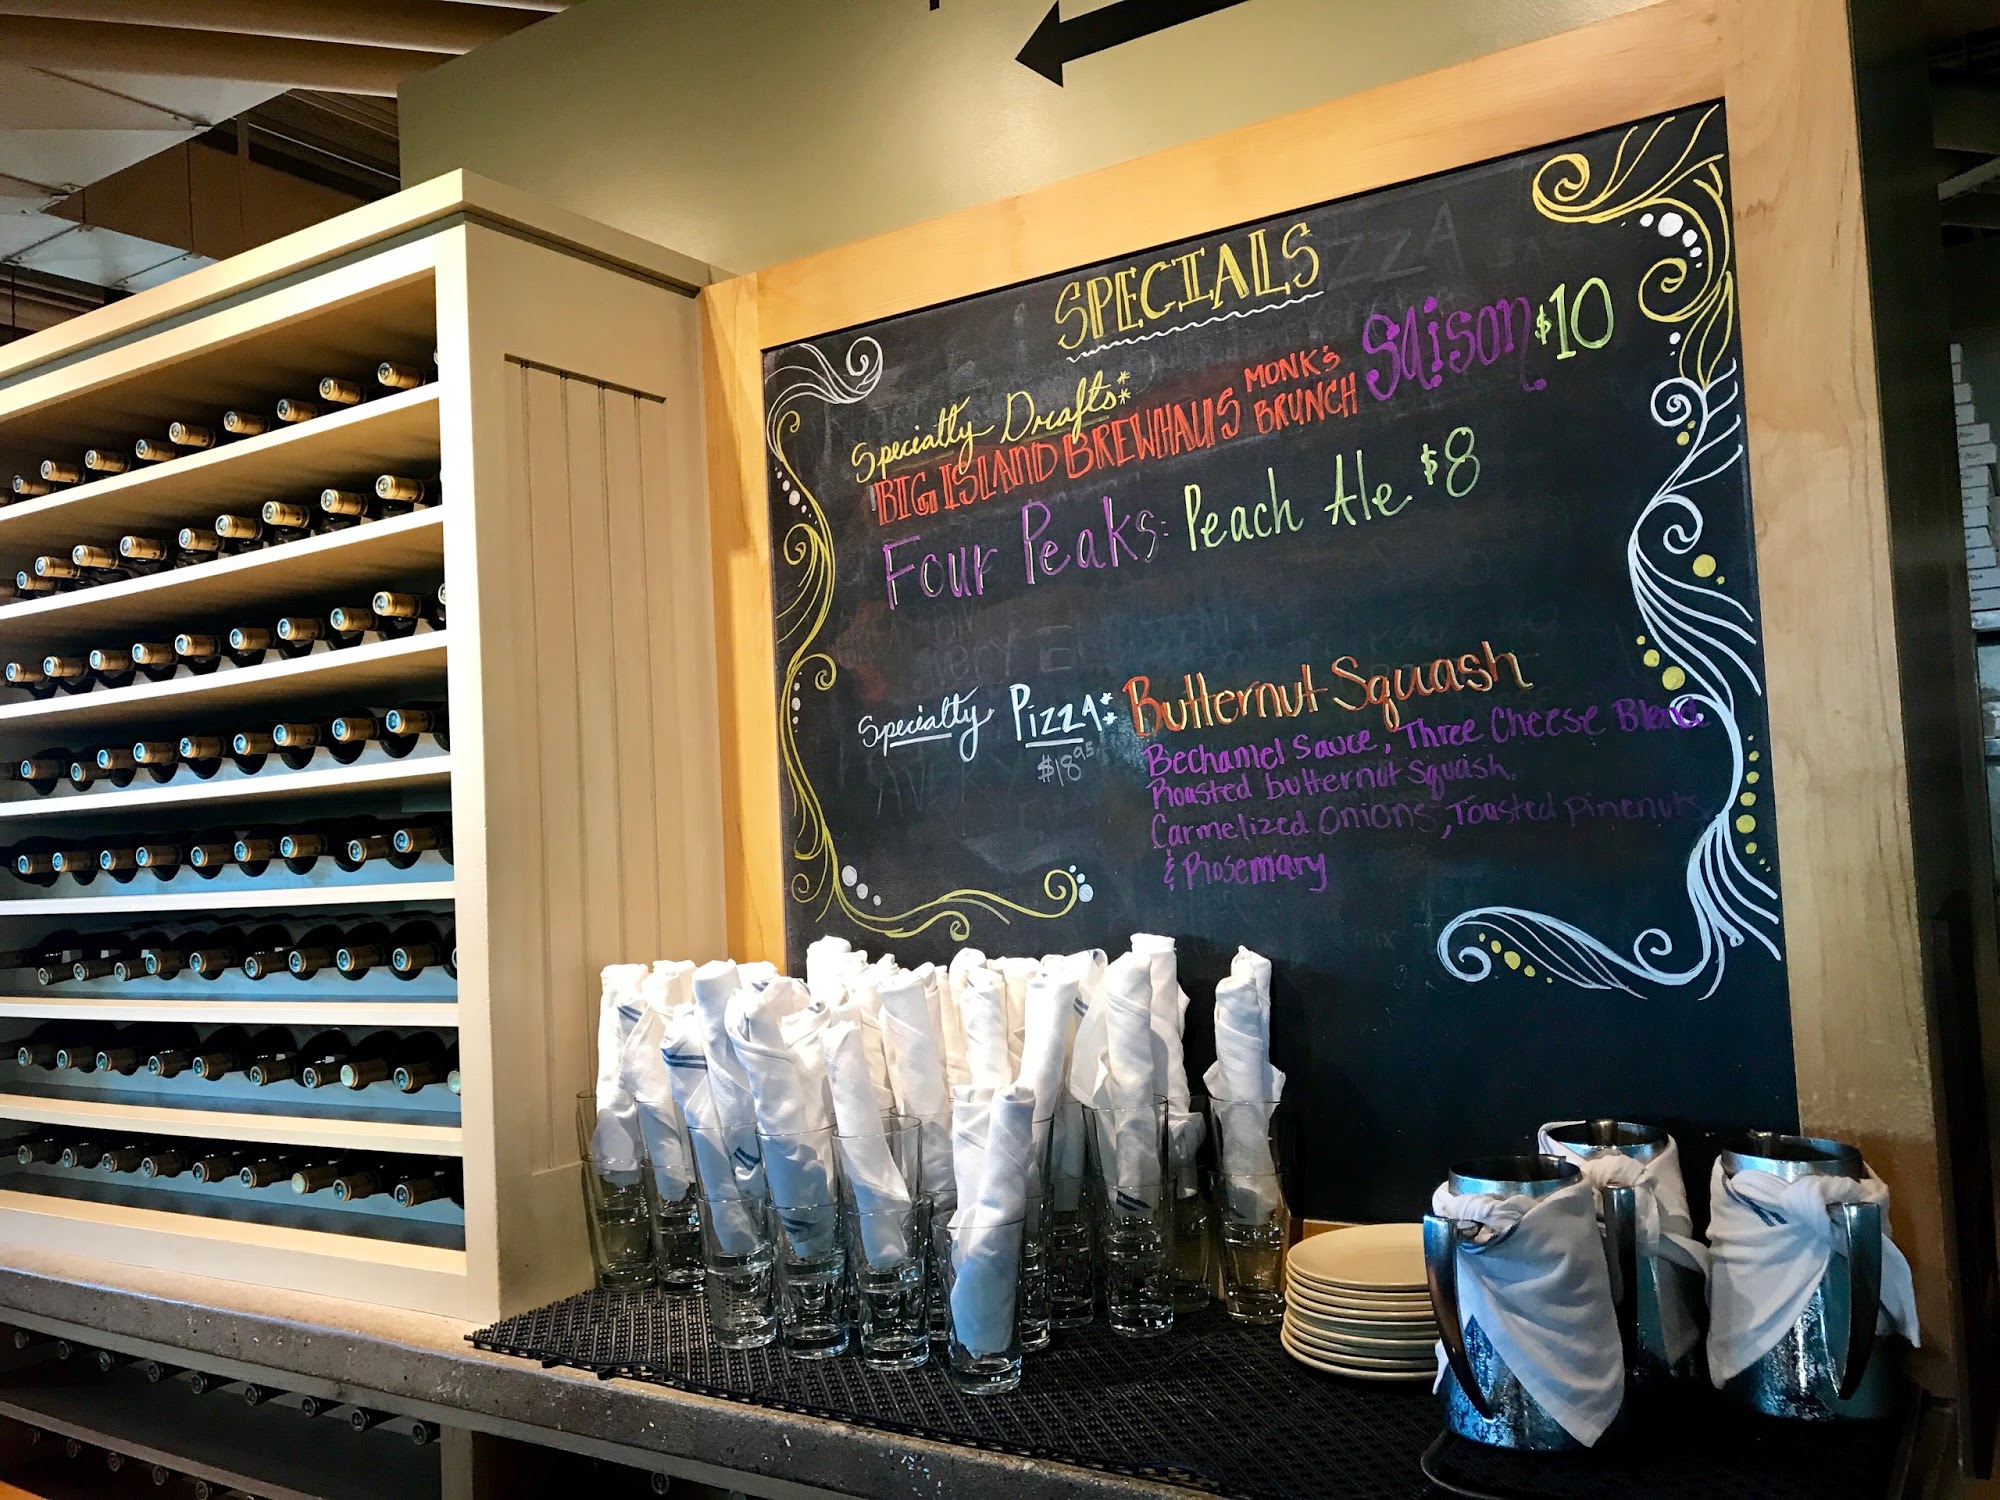 SPECIALS
Specialty Drafts:
BIG ISLAND BREWHAUS MONK'S BRUNCH Saison $10
Four Peaks: Peach Ale $8
Specialty Pizza: Butternut Squash
$18.95
Bechamel Sauce, Three Cheese Blend
Roasted butternut Squash.
Carmelized Onions, Toasted pinenuts
& Rosemary